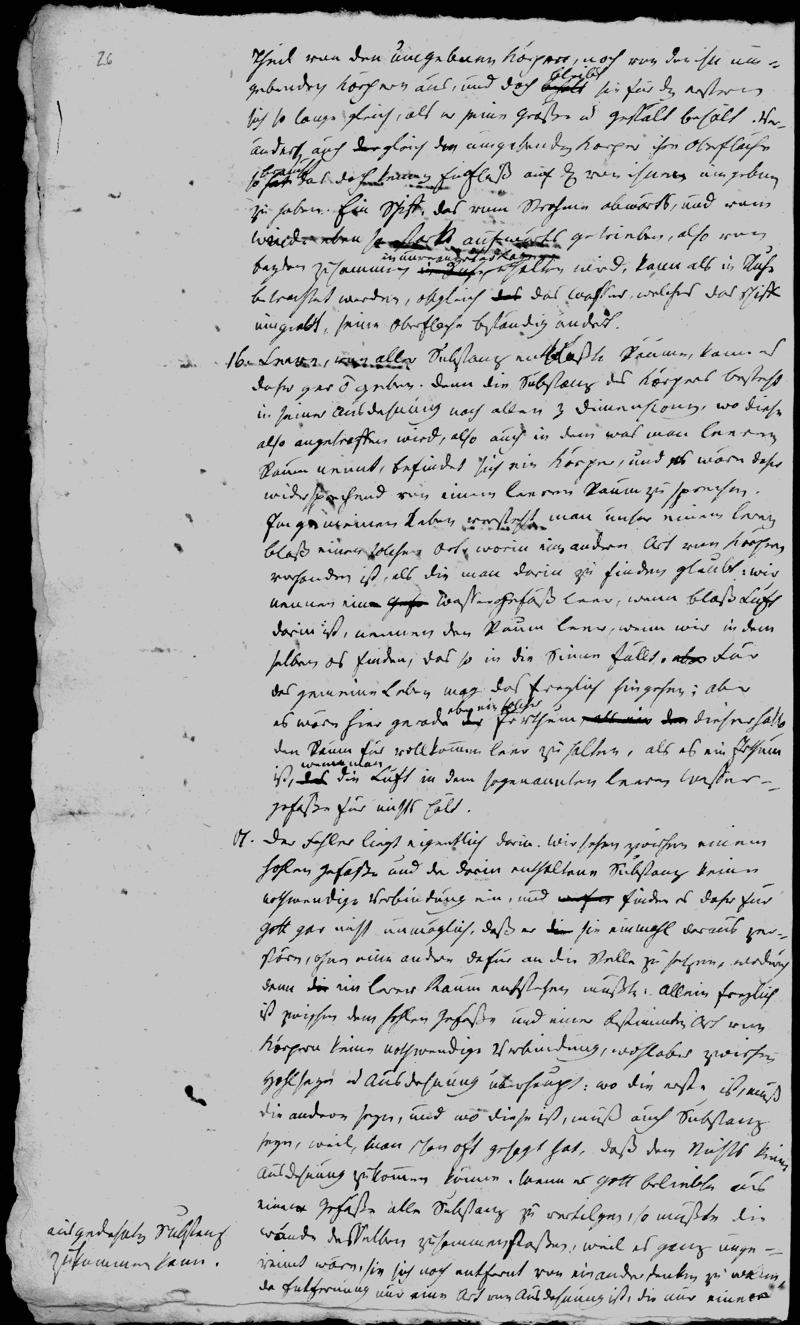 26
Theil von den umgebenen Körper, noch von den ihn um-
gebenden Körpern aus, und doch bleibt sie für den erstern
sich so lange gleich, als er seine Größe u Gestalt behält. Ver-
ändert auch gleich den umgebenden Körper ihre Oberfläche
so braucht das doch keinen Einfluß auf den von ihnen umgeben
zu haben. Ein Schiff, das vom Strohme abwärts, und vom
Winde eben so stark aufwärts getrieben, also von
beyden zusammen in unverrückter Lage erhalten wird, kann als in Ruhe
betrachtet werden, obgleich das Wasser, welches das Schiff
umgiebt, seine Oberfläche beständig ändert.
16. Leere, von aller Substanz entblößte Räume, kann es
daher gar geben. Denn die Substanz des Körpers besteht
in seiner Ausdehnung nach allen 3 Dimensionen, wo diese
also angetroffen wird, also auch in dem was man leeren
Raum nennt, befindet sich ein Körper, und es wäre daher
widersprechend von einem leeren Raum zu sprechen.
Im gemeinen Leben versteht man unter einem leeren
bloß einen solchen Ort, worin eine andere Art von Körpern
vorhanden ist, als die man darin zu finden glaubt: wir
nennen ein Wassergefäß leer, wenn bloß Luft
darin ist, nennen den Raum leer, wenn wir in dem
selben es finden, das so in die Sinne fällt. Für
das gemeine Leben mag das freylich hingehen; aber
es wäre hier gerade eben ein solcher Irrthum, dieserhalb
den Raum für vollkommen leer zu halten, als es ein Irthum
ist, wenn man die Luft in dem sogenannten leeren Wasser-
gefäße für nichts hält.
17. Der Fehler liegt eigentlich darin. Wir sehen zwischen einem
hohlen Gefäße und der darin enthaltene Substanz keine
nothwendige Verbindung ein, und finden es daher für
Gott gar nicht unmöglich, daß er sie einmahl daraus zer-
störe, ohne eine andere dafür an die Stelle zu setzen, wodurch
denn ein leerer Raum entstehen müßte. Allein freylich
ist zwischen dem hohlen Gefäße und einer bestimmten Art von
Körpern keine nothwendige Verbindung, wohl aber zwischen
Hohlseyn u Ausdehnung überhaupt: wo die erste ist, muß
die andere seyn, und wo diese ist, muß auch Substanz
seyn, weil, man schon oft gesagt hat, daß dem Nichts keine
Ausdehnung zukommen könne. Wenn es Gott beliebte aus
einem Gefäße alle Substanz zu vertilgen, so müßten die
Wände desselben zusammenstoßen; weil es ganz unge-
reimt wäre, sie sich noch entfernt von einander denken zu wollen,
da Entfernung nur eine Art von Ausdehnung ist, die nur einer
ausgedehnten Substanz
zukommen kann.